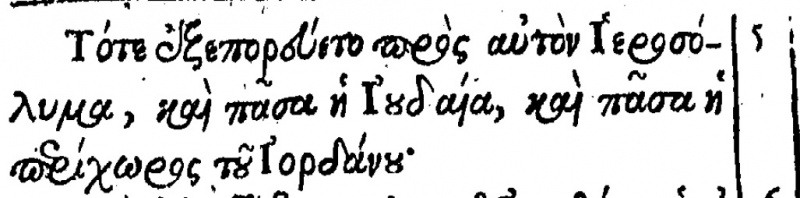 Τότε ἐξεπορεύετο πρὸς αὐτὸν Ἱεροσό- 5
λυμα, καὶ πᾶσα ἡ Ἰουδαία, καὶ πᾶσα ἡ
περίχωρος τοῦ Ἰορδάνου·